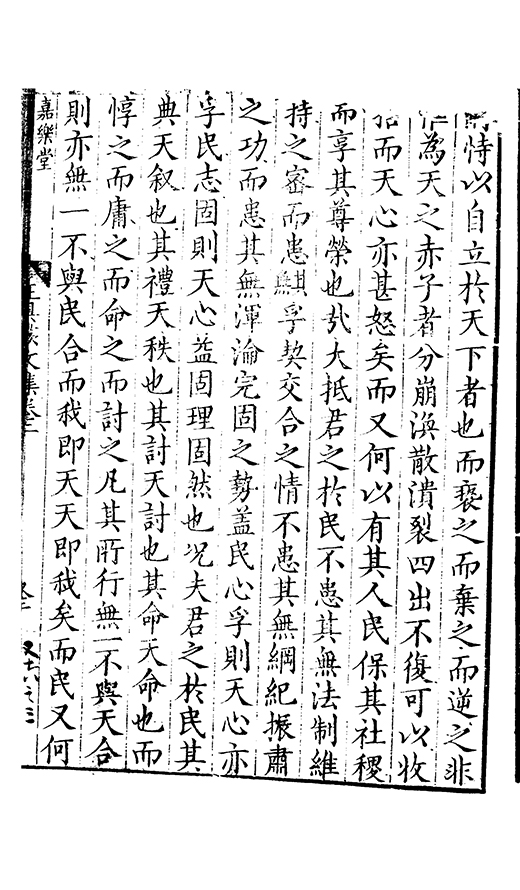 恃以自立於天下者也而褻之而棄之而逆之非
為天之赤子者分崩渙散潰裂四出不復可以收
拾而天心亦甚怒矣而又何以有其人民保其社稷
而享其尊榮也㢤大抵君之於民不患其無法制維
持之密而患黙孚契交合之情不患其無綱紀振肅
之功而患其無渾淪完固之勢盖民心孚則天心亦
孚民志固則天心益固理固然也况夫君之於民其
典天叙也其禮天秩也其討天討也其命天命也而
惇之而庸之而命之而討之凡其所行無一不與天合
則亦無一不與民合而我即天天即我矣而民又何
嘉樂堂
文集卷二